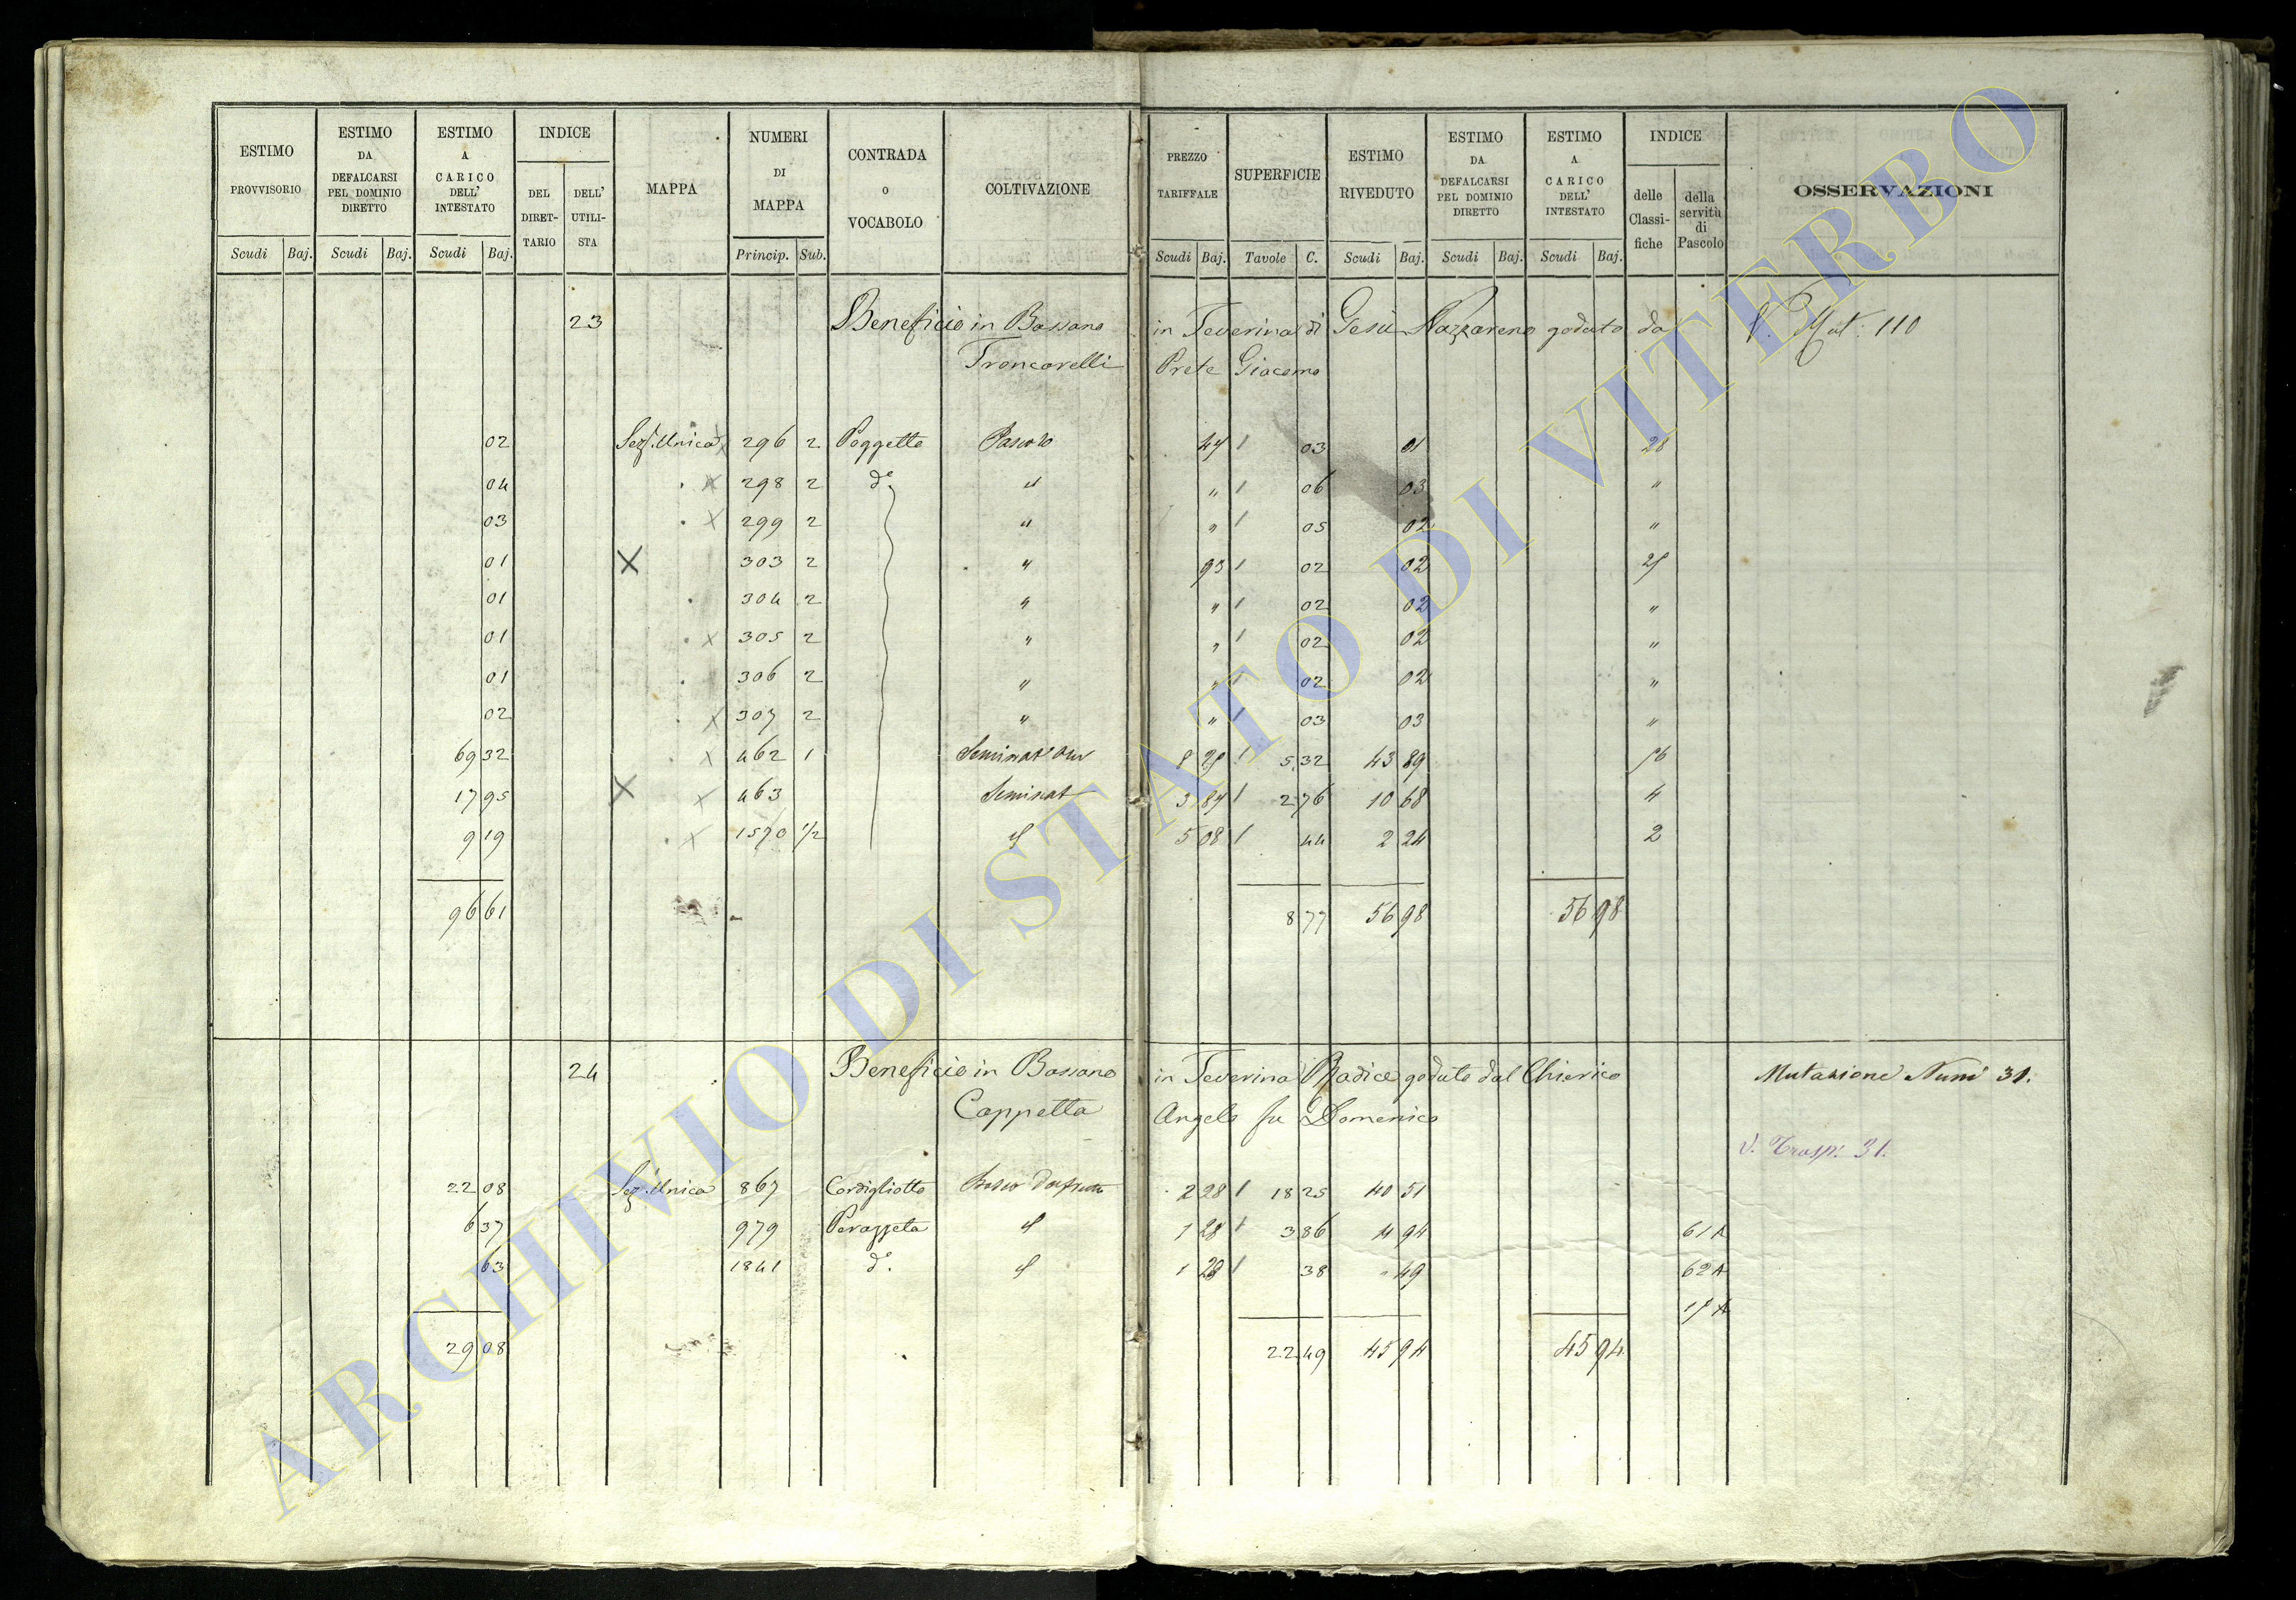 ESTIMO PROVVISORIO Scudi Baj.
ESTIMO DA DEFALCARSI PEL DOMINIO DIRETTO Scudi Baj.
ESTIMO A CARICO DELL' INTESTATO Scudi Baj.
INDICE DEL DIRETTARIO DELL' UTILISTA
MAPPA
NUMERI DI MAPPA Princip. Sub.
CONTRADA o VOCABOLO
COLTIVAZIONE
PREZZO TARIFFALE Scudi Baj.
SUPERFICIE Tavole C.
ESTIMO RIVEDUTO Scudi Baj.
ESTIMO DA DEFALCARSI PEL DOMINIO DIRETTO Scudi Baj.
ESTIMO A CARICO DELL' INTESTATO Scudi Baj.
INDICE delle Classifiche della servitù di Pascolo
OSSERVAZIONI
23 Beneficio in Bassano in Teverina di Gesù Nazzareno goduto da V. Mut. 110
Troncarelli Prete Giacomo
02 Sez. Unica 296 2 Poggetto Pascolo 47 1 03 01 28
04 298 2 d.o " " 1 06 03 "
03 299 2 " " 1 05 02 "
01 303 2 " 93 1 02 02
01 304 2 " " 1 02 02 "
01 305 2 " " 1 02 02 "
01 306 2 " " 1 02 02 "
02 307 2 " " 1 03 03 "
69 32 462 1 1 5 32 43 89
17 95 463 Seminat 1 2 76 10 68 4
9 19 1570 1/2 5 08 1 44 2 24 2
96 61 8 77 56 98 56 98
24 Beneficio in Bassano in Teverina Radice goduto dal Chierico Mutazione Num 31.
Cappetta Angelo fu Domenico
V. Trasp. 31.
22 08 Sez. Unica 867 Cordigliotto Bosco 2 28 1 18 25 40 51
6 37 979 Perazzeta 1 28 1 3 86 4 94 61 A
63 1841 d.o 1 28 1 38 " 49 62 A
29 08 22 49 45 94 45 94
ARCHIVIO DI STATO DI VITERBO